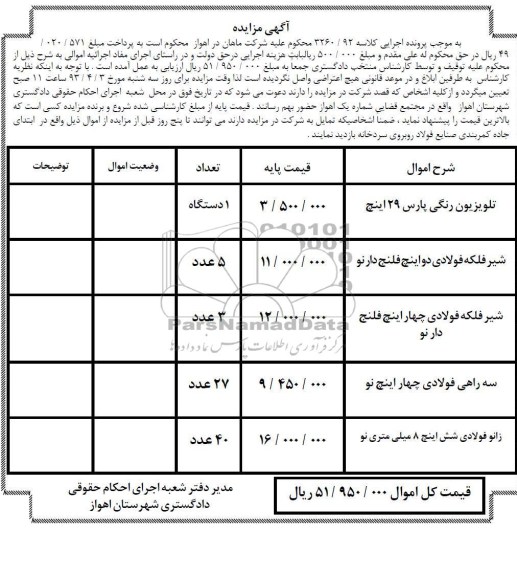 آگهی مزایده
به موجب پرونده اجرایی کلاسه ۹۲ / ۳۲۶۰ محکوم علیه شرکت ماهان در اهواز محکوم است به پرداخت مبلغ ۵۷۱ / ۰۲۰ /
۴۹ ریال در حق محکوم له علی مقدم و مبلغ ۰۰۰ / ۵۰۰ ریال بابت هزینه اجرایی در حق دولت و در راستای اجرای مفاد اجرائیه اموالی به شرح ذیل از
محکوم علیه توقیف و توسط کارشناس منتخب دادگستری جمعا به مبلغ ۰۰۰ / ۹۵۰ / ۵۱ ریال ارزیابی به عمل آمده است . با توجه به اینکه نظریه
کارشناس به طرفین ابلاغ و در موعد قانونی هیچ اعتراضی واصل نگردیده است لذا وقت مزایده برای روز سه شنبه مورخ ۳ / ۴ / ۹۳ ساعت ۱۱ صبح
تعیین میگردد و از کلیه اشخاص که قصد شرکت در مزایده را دارند دعوت می شود که در تاریخ فوق در محل شعبه اجرای احکام حقوقی دادگستری
شهرستان اهواز واقع در مجتمع قضایی شماره یک اهواز حضور بهم رسانند . قیمت پایه از مبلغ کارشناسی شده شروع و برنده مزایده کسی است که
بالاترین قیمت را پیشنهاد نماید ، ضمنا اشخاصیکه تمایل به شرکت در مزایده دارند می توانند تا پنج روز قبل از مزایده از اموال ذیل واقع در ابتدای
جاده کمربندی صنایع فولاد روبروی سردخانه بازدید نمایند .
شرح اموال قیمت پایه تعداد وضعیت اموال توضیحات
تلویزیون رنگی پارس ۲۹ اینچ ۰۰۰ / ۵۰۰ / ۳ ۱ دستگاه
شیر فلکه فولادی دو اینچ فلنج دار نو ۰۰۰ / ۰۰۰ / ۱۱ ۵ عدد
شیر فلکه فولادی چهار اینچ فلنج
دار نو ۰۰۰ / ۰۰۰ / ۱۲ ۳ عدد
سه راهی فولادی چهار اینچ نو ۰۰۰ / ۴۵۰ / ۹ ۲۷ عدد
زانو فولادی شش اینچ ۸ میلی متری نو ۰۰۰ / ۰۰۰ / ۱۶ ۴۰ عدد
ParsNamadData
مرکز فرآوری اطلاعات پارس نماد داده ها
قیمت کل اموال ۰۰۰ / ۹۵۰ / ۵۱ ریال
مدیر دفتر شعبه اجرای احکام حقوقی
دادگستری شهرستان اهواز